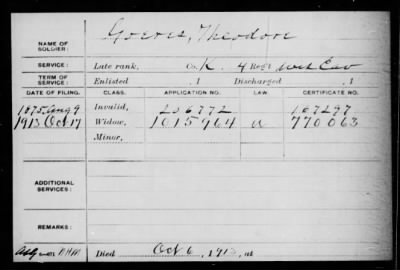 NAME OF SOLDIER: Goeres, Theodore
SERVICE: Late rank, Co. K. 4 Reg't Wis Cav
TERM OF SERVICE: Enlisted , 1 Discharged , 1
DATE OF FILING. CLASS. APPLICATION NO. LAW. CERTIFICATE NO.
1875 Aug 9 Invalid, 206772 167297
1913 Oct 17 Widow, 1015964 a 770063
Minor,
ADDITIONAL SERVICES:
REMARKS:
Died Oct 6, 1913, at